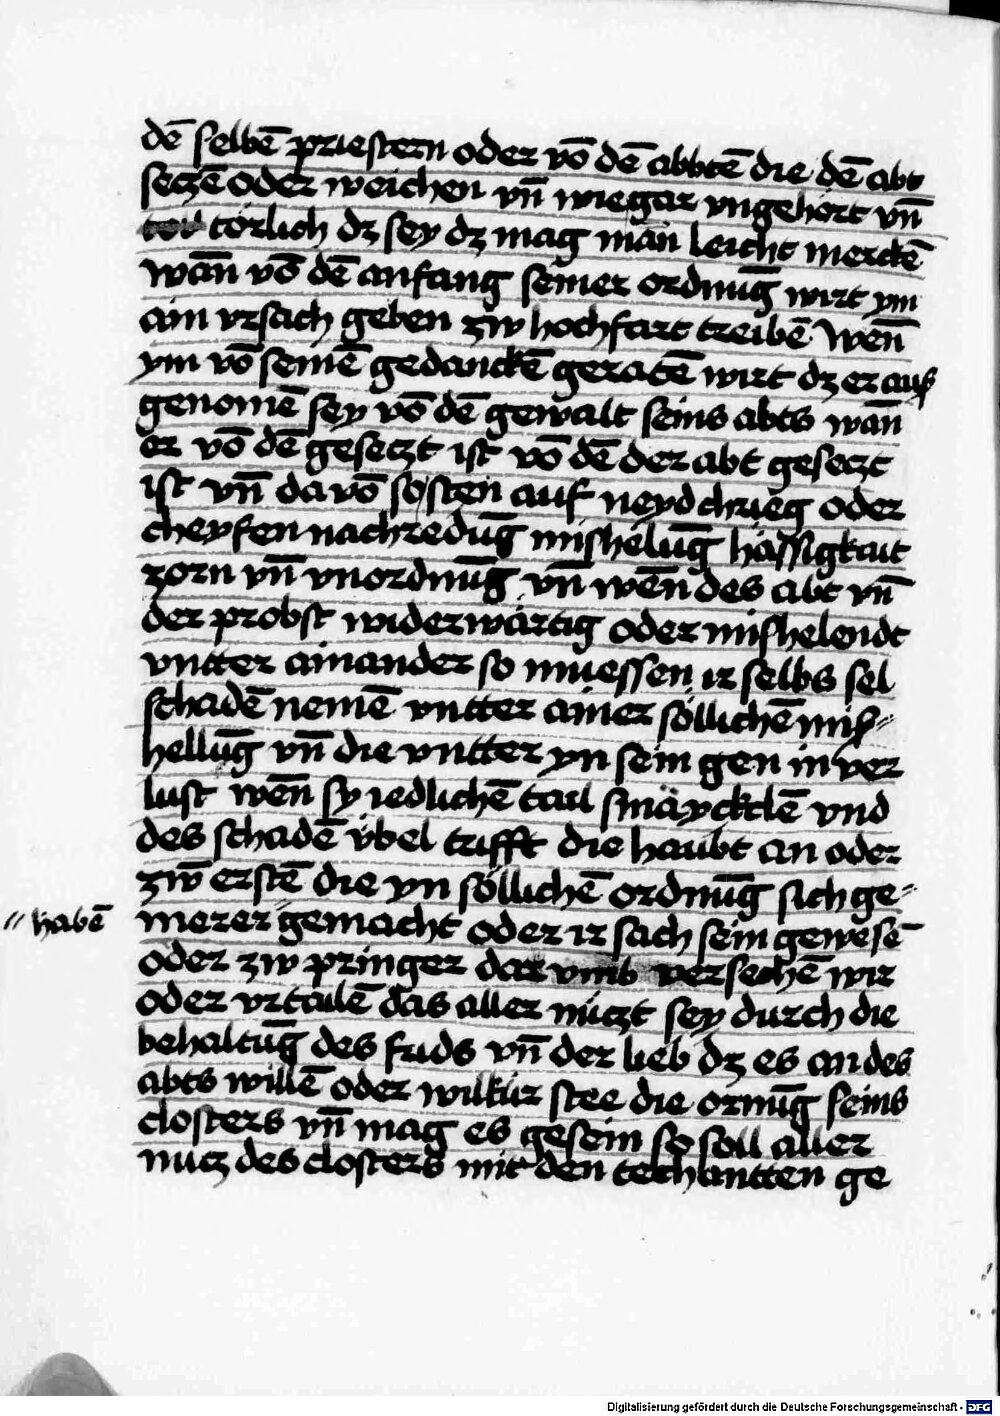 dē selbē priestern oder vō dē abbtē die dē abt
seczē oder weichen vn̄ wiegar vngehört vn̄
törlich dz sey dz mag man leicht merckē
wan̄ vō dē anfang seiner ordnūg wirt ym
ain vrsach geben zw hochfart treibē wen̄
ym vō seinē gedanckē geratē wirt dz er auß
genomē sey vō dē gewalt seins abts wan̄
er vō dē geseczt ist vō dē der abt geseczt
ist vn̄ da vō sosten auf neyd chrieg oder
cheyfen nachredūg mishelūg hässigkait
zorn vn̄ vnordnūg vn̄ wen̄ des abt vn̄
der probst widerwärtig oder mishelendt
vntter ainander so muessen ir selbs sel
schadē nemē vntter ainer söllichē miß⸗
hellūg vn̄ die vntter yn sein gen in ver
lust wen̄ sy iedlichē tail smäycklē vnd
des schadē vbel trifft die haubt an oder
zw̄ erstē die yn söllichē ordnūg sich ge⸗
merer gemacht oder ir sach sein gewesē
〃 habē
oder zw pringer dar vmb versechē wir
oder vrtailē das aller nüczt sey durch die
behaltūg des frids vn̄ der lieb dz es an des
abts willē oder wilkür stee die ornūg seins
closters vn̄ mag es gesein so soll aller
nucz des closters mit den techantten ge
Digitalisierung gefördert durch die Deutsche Forschungsgemeinschaft - DFG